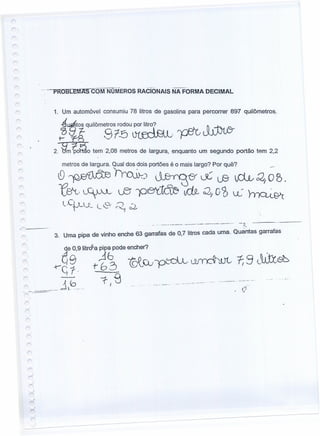 PROBLEMAS COM NÚMEROS RACIONAIS NA FORMA DECIMAL
1. Um automóvel consumiu 78 litros de gasolina para percorrer 897 quilômetros.
Quantos quilômetros rodou por litro?
897
+ 78
975
975 rodou por litro
2. Um portão tem 2,08 metros de largura, enquanto um segundo portão tem 2,2
metros de largura. Qual dos dois portões é o mais largo? Por quê?
O portão mais longo é o de 2,08.
Por que o portão de 2,08 é maior
que o 2,2
3. Uma pipa de vinho enche 63 garrafas de 0,7 litros cada uma. Quantas garrafas
de 0,9 litro a pipa pode encher?
0,9
+ 0,7
1,6
16
+ 63
7,9
Ela pode encher 7,9 litros